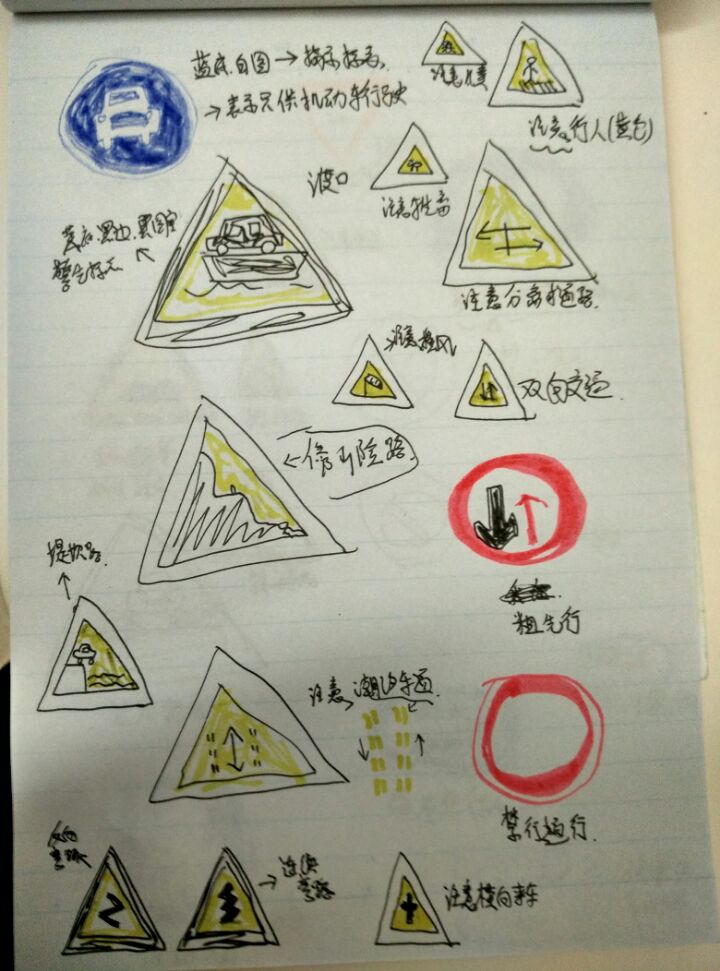 蓝底白图→指示标志
→表示只供机动车行驶
注意儿童
注意行人(黄色)
渡口
注意牲畜
黄底.黑边.黑图案
警告标志
注意分离式道路.
注意横风
双向交通.
←傍山险路.
堤坝路.
粗先行
注意潮汐车道.
禁行通行.
反向
弯路
→连续
弯路
注意横向来车